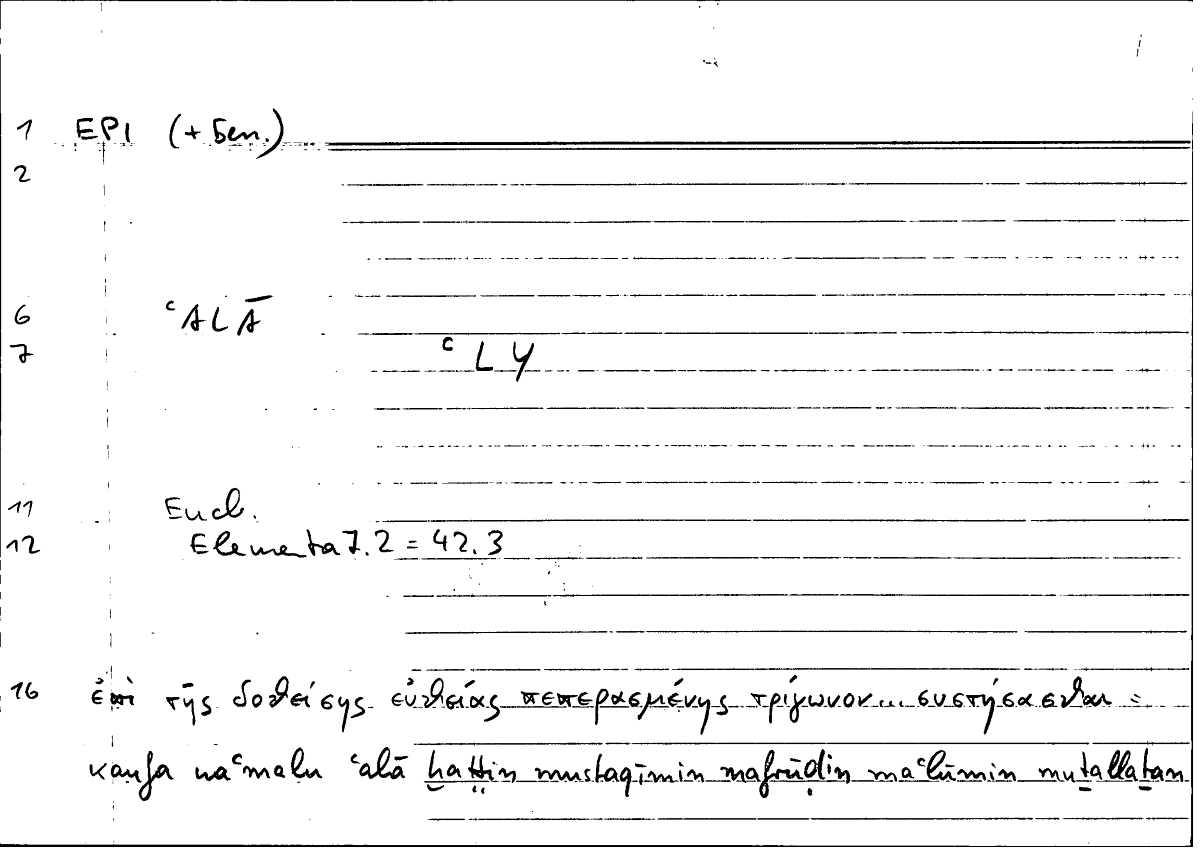 1 EPI (+ Gen.)
2
6 ʿALĀ
7 ʿLY
11 Eucl.
12 Elementa I.2 = 42.3
16 ἐπὶ τῆς δοθείσης εὐθείας πεπερασμένης τρίγωνον... συστήσασθαι =
kayfa naʿmalu ʿalā ḫaṭṭin mustaqīmin mafrūḍin maʿlūmin muṯallaṯan